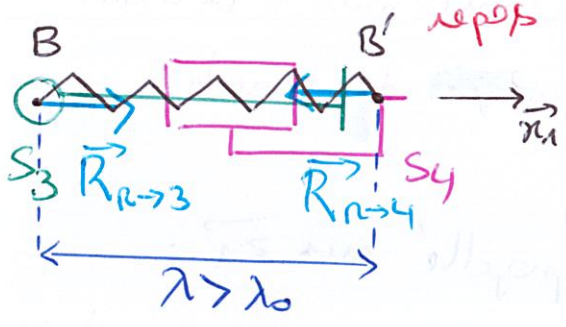 B B'
$\vec{x_1}$
S₃ $\vec{R}_{R→3}$ $\vec{R}_{R→4}$ S₄
λ > λ₀